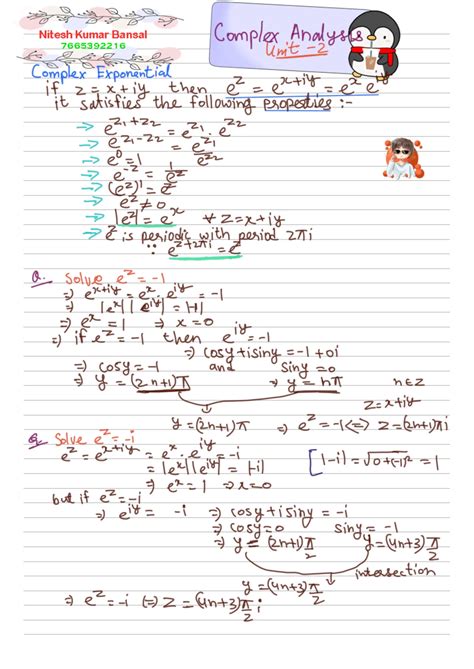 Nitesh Kumar Bansal
7665392216
Complex Analysis
Unit-2
Complex Exponential
if z = x+iy then e^z = e^{x+iy} = e^x e^{iy}
it satisfies the following properties :-
→ e^{z1+z2} = e^{z1} . e^{z2}
→ e^{z1-z2} = e^{z1} / e^{z2}
→ e^0 = 1
→ e^{-z} = 1/e^z
→ (e^z)' = e^z
→ e^z ≠ 0
→ |e^z| = e^x ∀ z = x+iy
→ e^z is periodic with period 2πi
∵ e^{z+2πi} = e^z
Q. Solve e^z = -1
⇒ e^{x+iy} = e^x . e^{iy} = -1
⇒ |e^x| |e^{iy}| = |-1|
⇒ e^x = 1 ⇒ x = 0
⇒ if e^z = -1 then e^{iy} = -1
⇒ cosy + isiny = -1 + 0i
⇒ cosy = -1 and siny = 0
⇒ y = (2n+1)π ⇒ y = nπ n∈Z
z = x+iy
y = (2n+1)π ⇒ e^z = -1 <=> z = (2n+1)πi
Q. Solve e^z = -i
e^z = e^{x+iy} = e^x . e^{iy} = -i
= |e^x| |e^{iy}| = |-i| [|-i| = √0+(-1)² = 1
⇒ e^x = 1 ⇒ x = 0
but if e^z = -i
⇒ e^{iy} = -i ⇒ cosy + isiny = -i
⇒ cosy = 0 siny = -1
⇒ y = (2n+1)π/2 y = (4n+3)π/2
intersection
y = (4n+3)π/2
⇒ e^z = -i <=> z = (4n+3)π/2 i